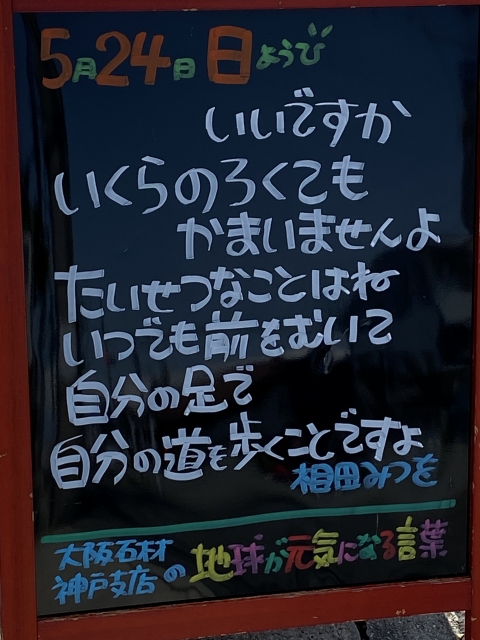 5月24日 日ようび
いいですか
いくらのろくても
かまいませんよ
たいせつなことはね
いつでも前をむいて
自分の足で
自分の道を歩くことですよ
相田みつを
大阪石材
神戸支店の地球が元気になる言葉